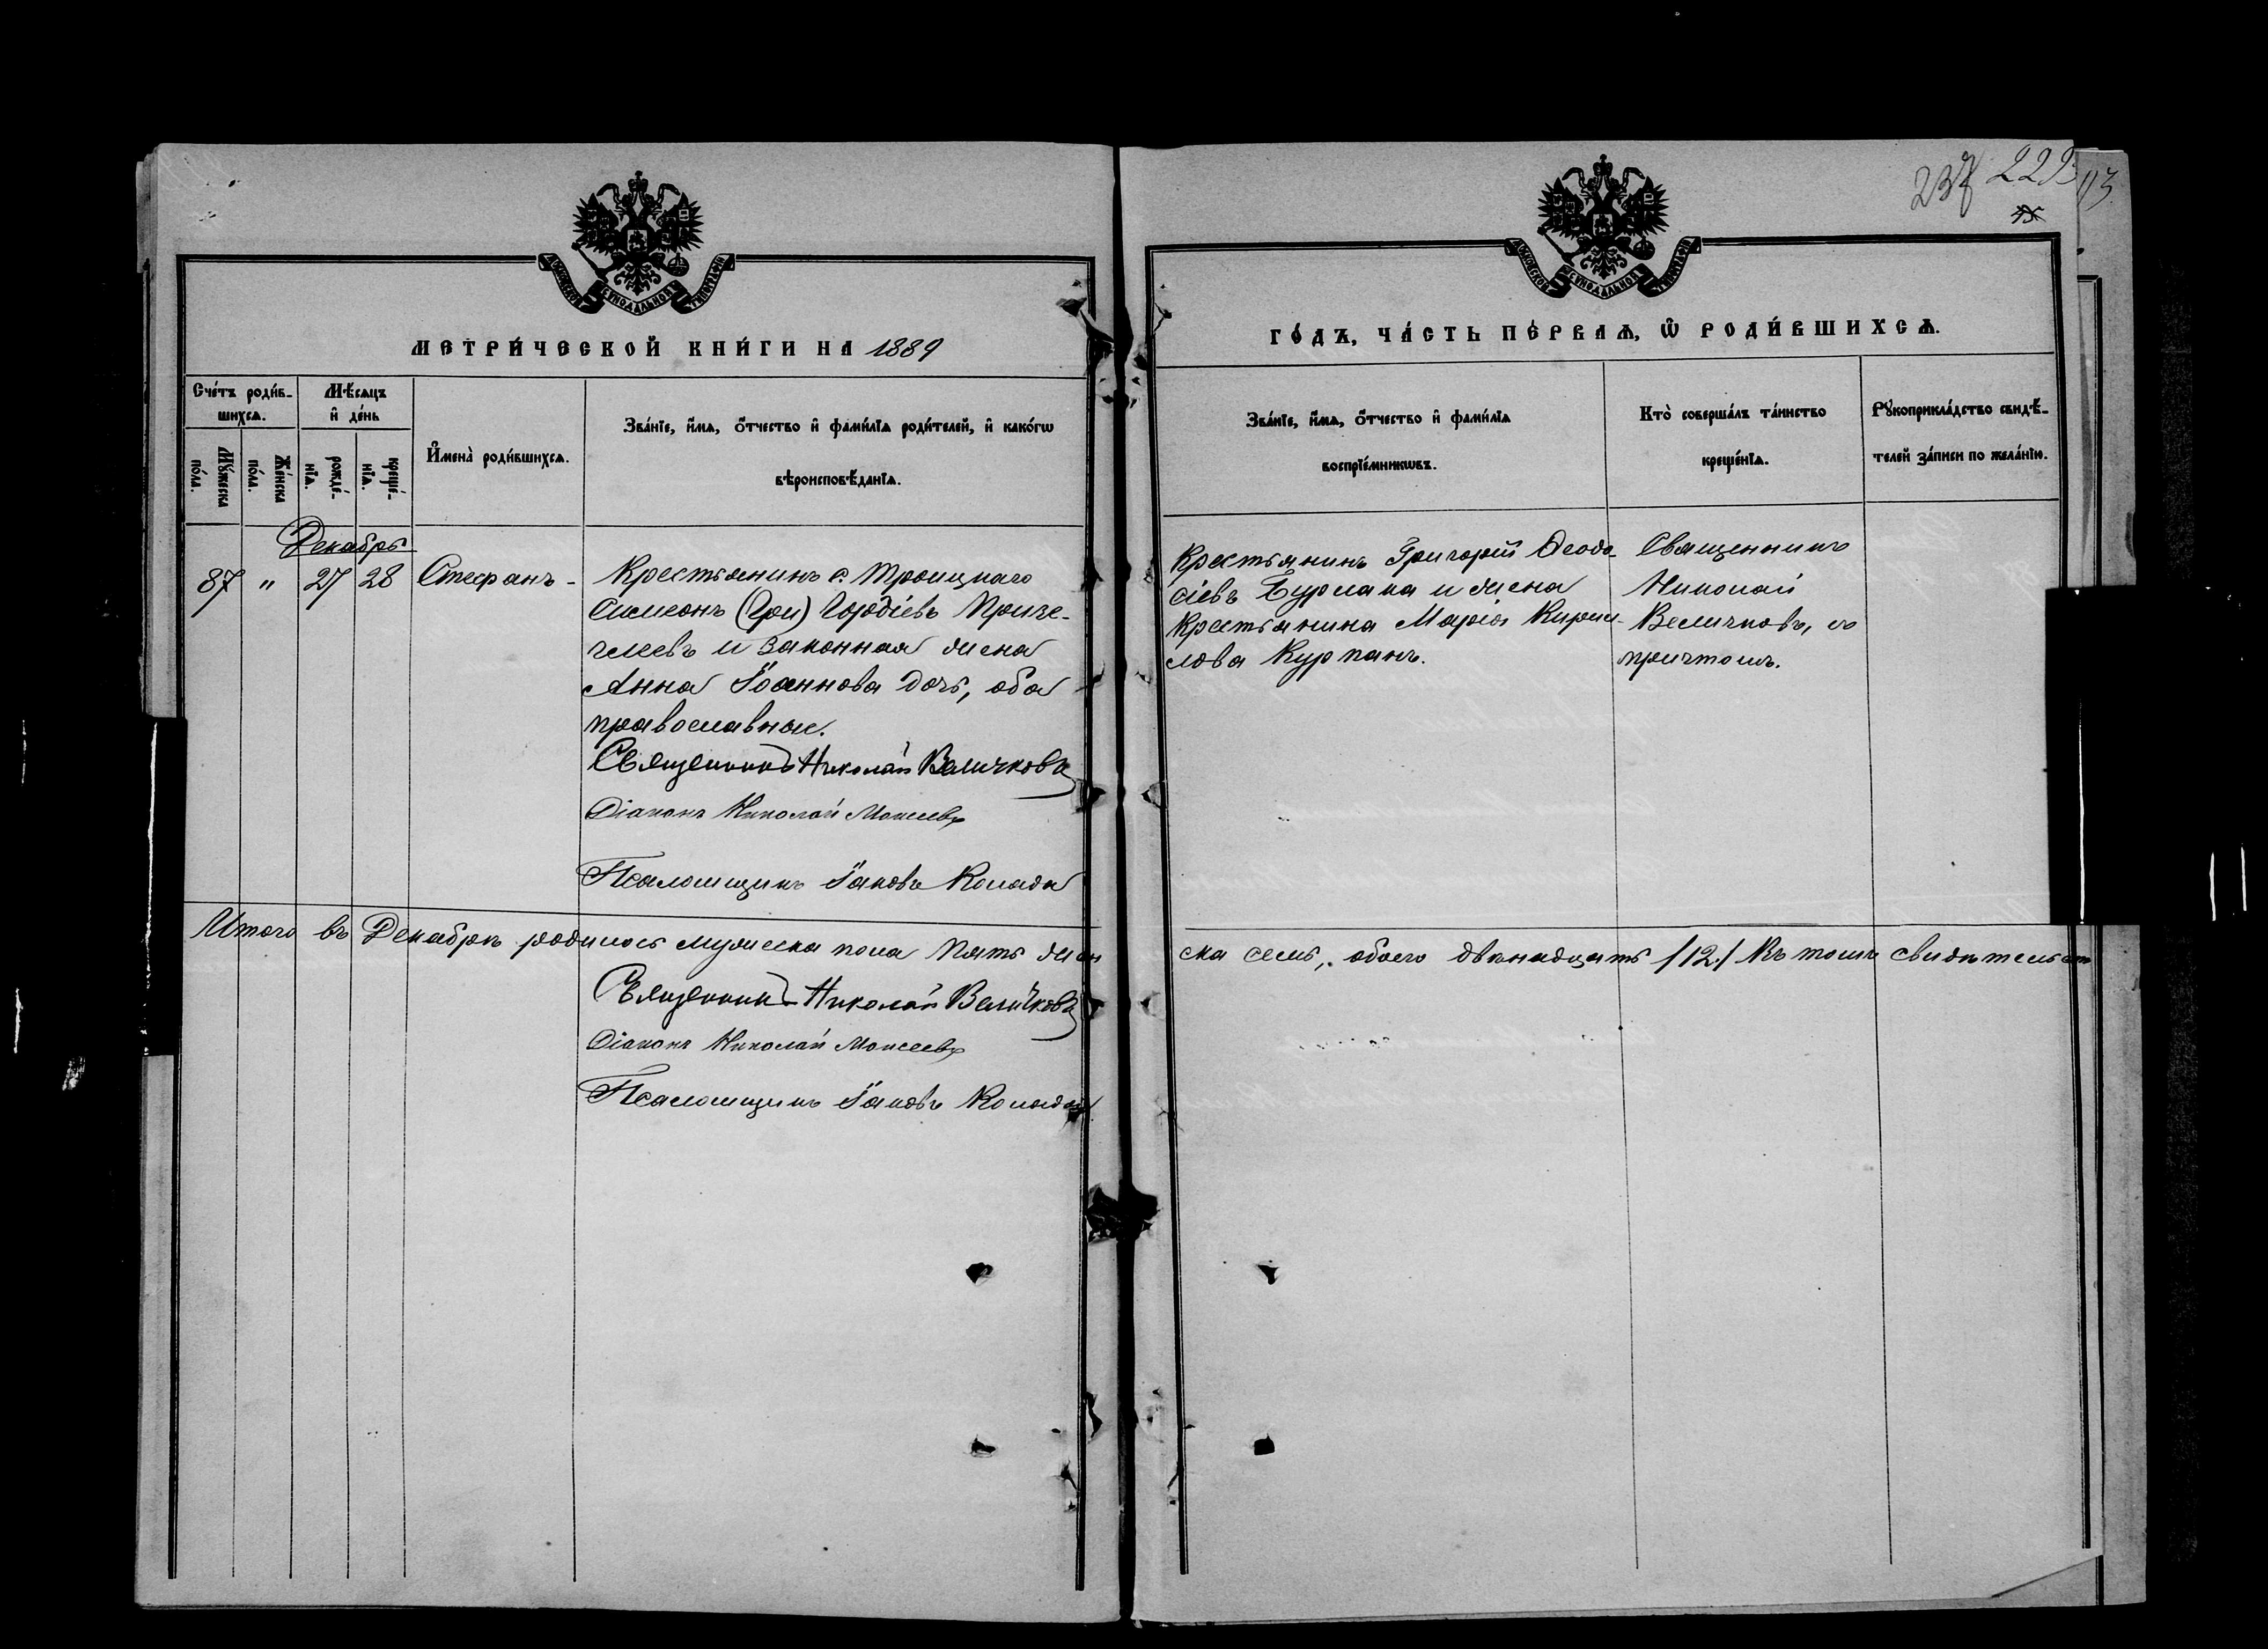 237 222 113
45
МОСКОВСКОЙ СѴНОДАЛЬНОЙ ТИПОГРАФІИ
МОСКОВСКОЙ СѴНОДАЛЬНОЙ ТИПОГРАФІИ
МЕТРИ́ЧЕСКОЙ КНИ́ГИ НА 1889
ГО́ДЪ, ЧА́СТЬ ПЕ́РВАѦ, Ѡ҆ РОДИ́ВШИХСѦ.
Сче́тъ роди́в-
шихсѧ.
Мꙋ́жеска
по́ла.
Же́нска
по́ла.
Мѣ́сѧцъ
и҆ де́нь
рожде́-
нїѧ.
креще́-
нїѧ.
И҆мена̀ роди́вшихсѧ.
Зва́нїе, и҆́мѧ, о҆́тчество и҆ фами́лїѧ роди́телей, и҆ како́гѡ
вѣроисповѣ́данїѧ.
Зва́нїе, и҆́мѧ, о҆́тчество и҆ фами́лїѧ
воспрїе́мникѡвъ.
Кто̀ соверша́лъ та́инство
креще́нїѧ.
Рꙋкоприкла́дство свидѣ́-
телей за́писи по жела́нїю.
Декабрь
87 " 27 28 Стефанъ -
Крестьянинъ с. Троицкаго
Симеонъ (Гри) Гордіевъ Приче-
челевъ и законная жена
Анна Іоаннова дочь, оба
православные.
Священникъ Николай Величковъ
Діаконъ Николай Моисеевъ
Псаломщикъ Іаковъ Коляда
Крестьянинъ Григорій Ѳеодо-
сіевъ Бурлака и жена
Крестьянина Марія Кирил-
лова Курпанъ.
Священникъ
Николай
Величковъ, съ
причтомъ.
Итого въ Декабрѣ родилось мужеска пола пять жен
ска семь, обоего двѣнадцать /12./ Въ томъ свидѣтельст
Священникъ Николай Величковъ
Діаконъ Николай Моисеевъ
Псаломщикъ Іаковъ Коляда